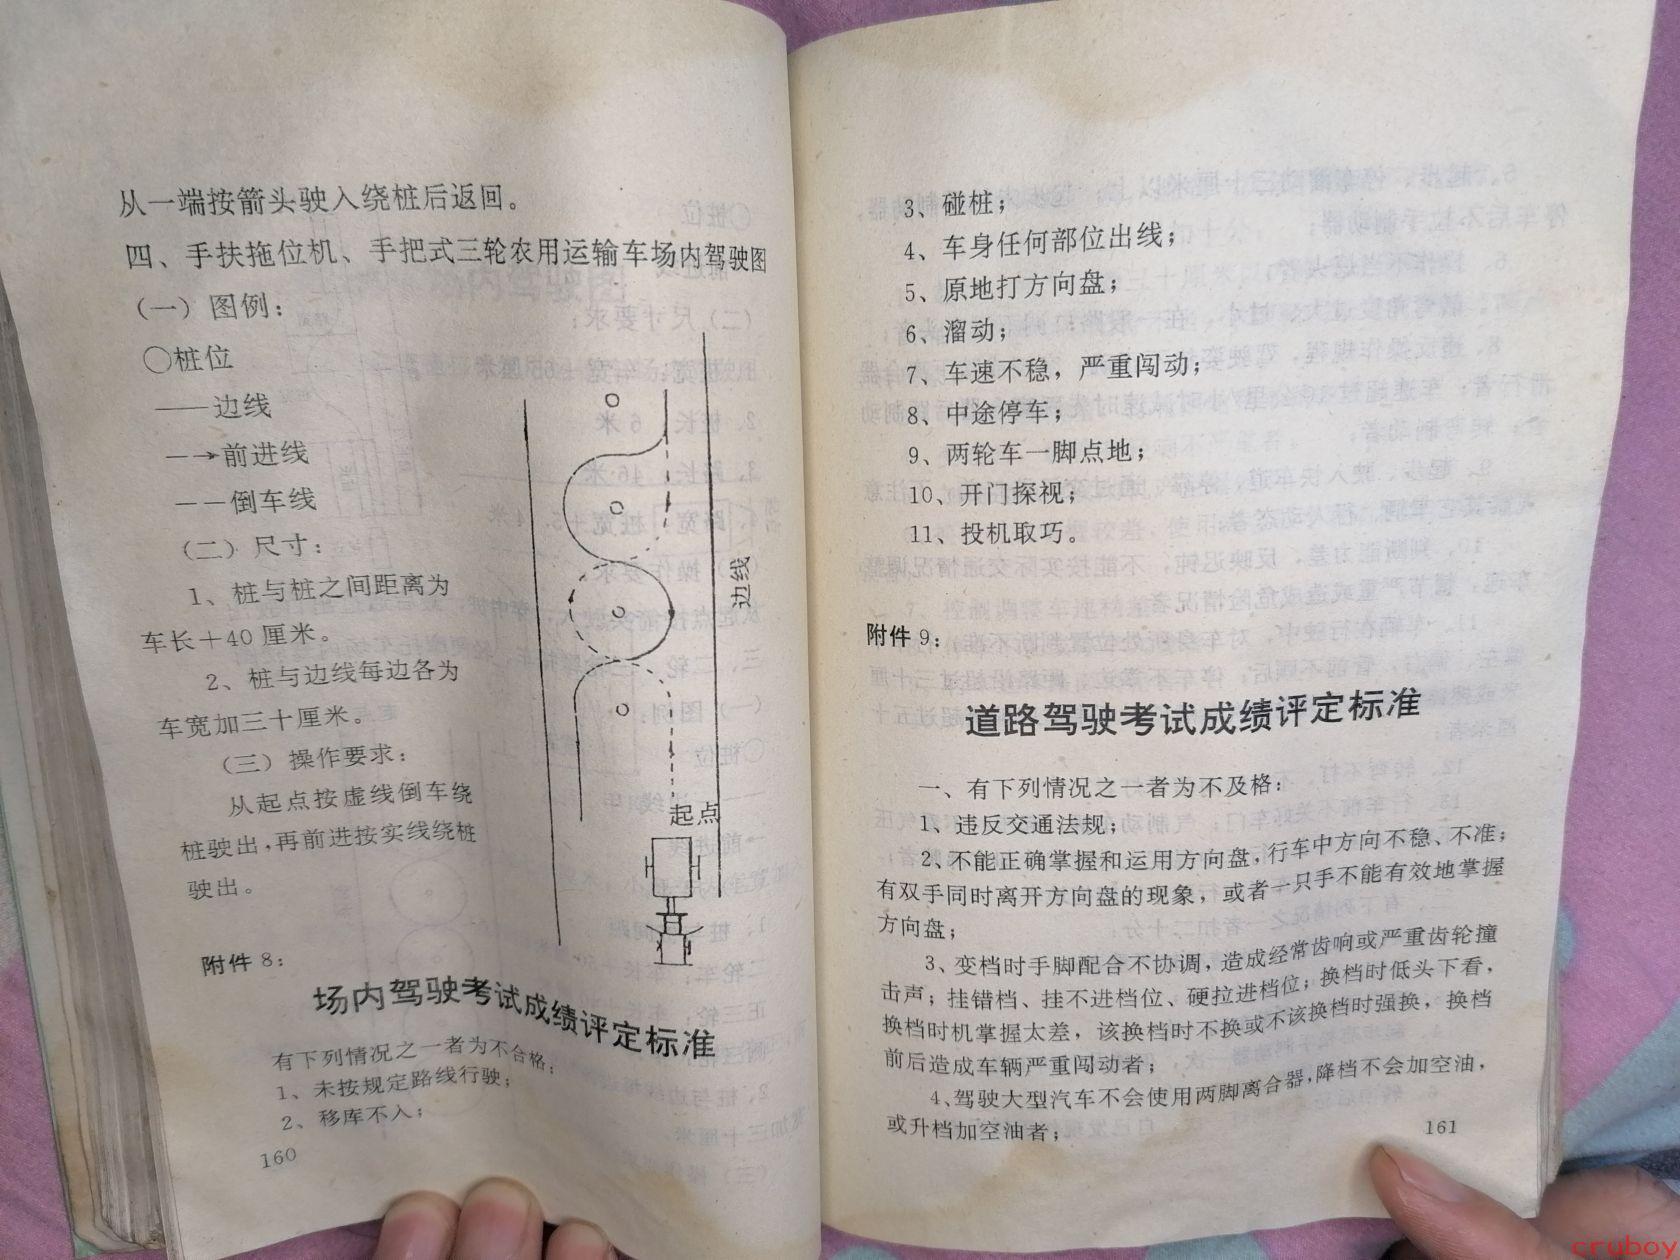 从一端按箭头驶入绕桩后返回。
四、手扶拖位机、手把式三轮农用运输车场内驾驶图
(一)图例：
○桩位
——边线
—→前进线
——倒车线
(二)尺寸：
1、桩与桩之间距离为
车长＋40厘米。
2、桩与边线每边各为
车宽加三十厘米。
(三)操作要求：
从起点按虚线倒车绕
桩驶出，再前进按实线绕桩
驶出。
边线
起点
附件8：
场内驾驶考试成绩评定标准
有下列情况之一者为不合格：
1、未按规定路线行驶；
2、移库不入；
160
3、碰桩；
4、车身任何部位出线；
5、原地打方向盘；
6、溜动；
7、车速不稳，严重闯动；
8、中途停车；
9、两轮车一脚点地；
10、开门探视；
11、投机取巧。
附件9：
道路驾驶考试成绩评定标准
一、有下列情况之一者为不及格：
1、违反交通法规；
2、不能正确掌握和运用方向盘，行车中方向不稳、不准；
有双手同时离开方向盘的现象，或者一只手不能有效地掌握
方向盘；
3、变档时手脚配合不协调，造成经常齿响或严重齿轮撞
击声；挂错档、挂不进档位、硬拉进档位；换档时低头下看，
换档时机掌握太差，该换档时不换或不该换档时强换，换档
前后造成车辆严重闯动者；
4、驾驶大型汽车不会使用两脚离合器，降档不会加空油，
或升档加空油者；
161
cruboy